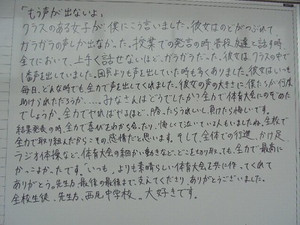 「もう声が出ないよ」
クラスのある女子が、僕にこう言いました。彼女はのどがつぶれて
ガラガラの声しか出なかった。授業での発言の時、普段、友達と話す時
全てにおいて、上手く話せないほど、ガラガラだった。彼女は、クラスの中で
1番声を出していました。団長よりも声を出していた時も多くありました。彼女はいつも
毎日、どんな時でも全力で声を出してくれました。彼女の声の大きさに、僕たちが何度
助けられただろうか…。みなさんはどうでしたか？全力で体育大会にのぞめた
でしょうか。全力でやればやるほど、勝ったらうれしく、負けたら悔しいです。
結果発表の時、全力で喜んだ
全力で取り組んだからこその感情だと思います。そして全体での行進、かけ足
ラジオ体操など、体育大会の細かい動きなど、どこを切り取っても、全力で最高に
かっこよかったです。いつも、よりも素晴らしい体育大会を共に作ってくれて
ありがとう。先生方、最後の最後まで、支えてくださり、ありがとうございました。
全校生徒、先生方、西尾中学校、大好きです。